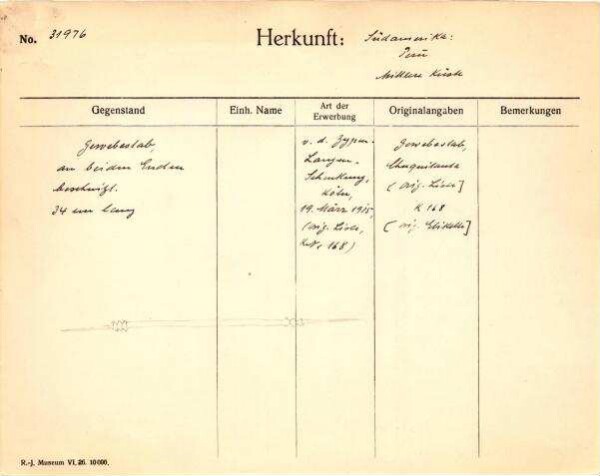 No. 31976
Herkunft: Südamerika:
Peru
Mittlere Küste
Gegenstand
Einh. Name
Art der
Erwerbung
Originalangaben
Bemerkungen
Gewebestab,
an beiden Enden
beschnitzt.
34 cm lang
v. d. Zypen-
Langen-
Schenkung,
Köln,
19. März 1915,
(orig. Liste,
K. No 168)
Gewebestab,
(orig. Liste]
K 168
[orig. Etikette]
R.-J. Museum VI. 26. 10000.